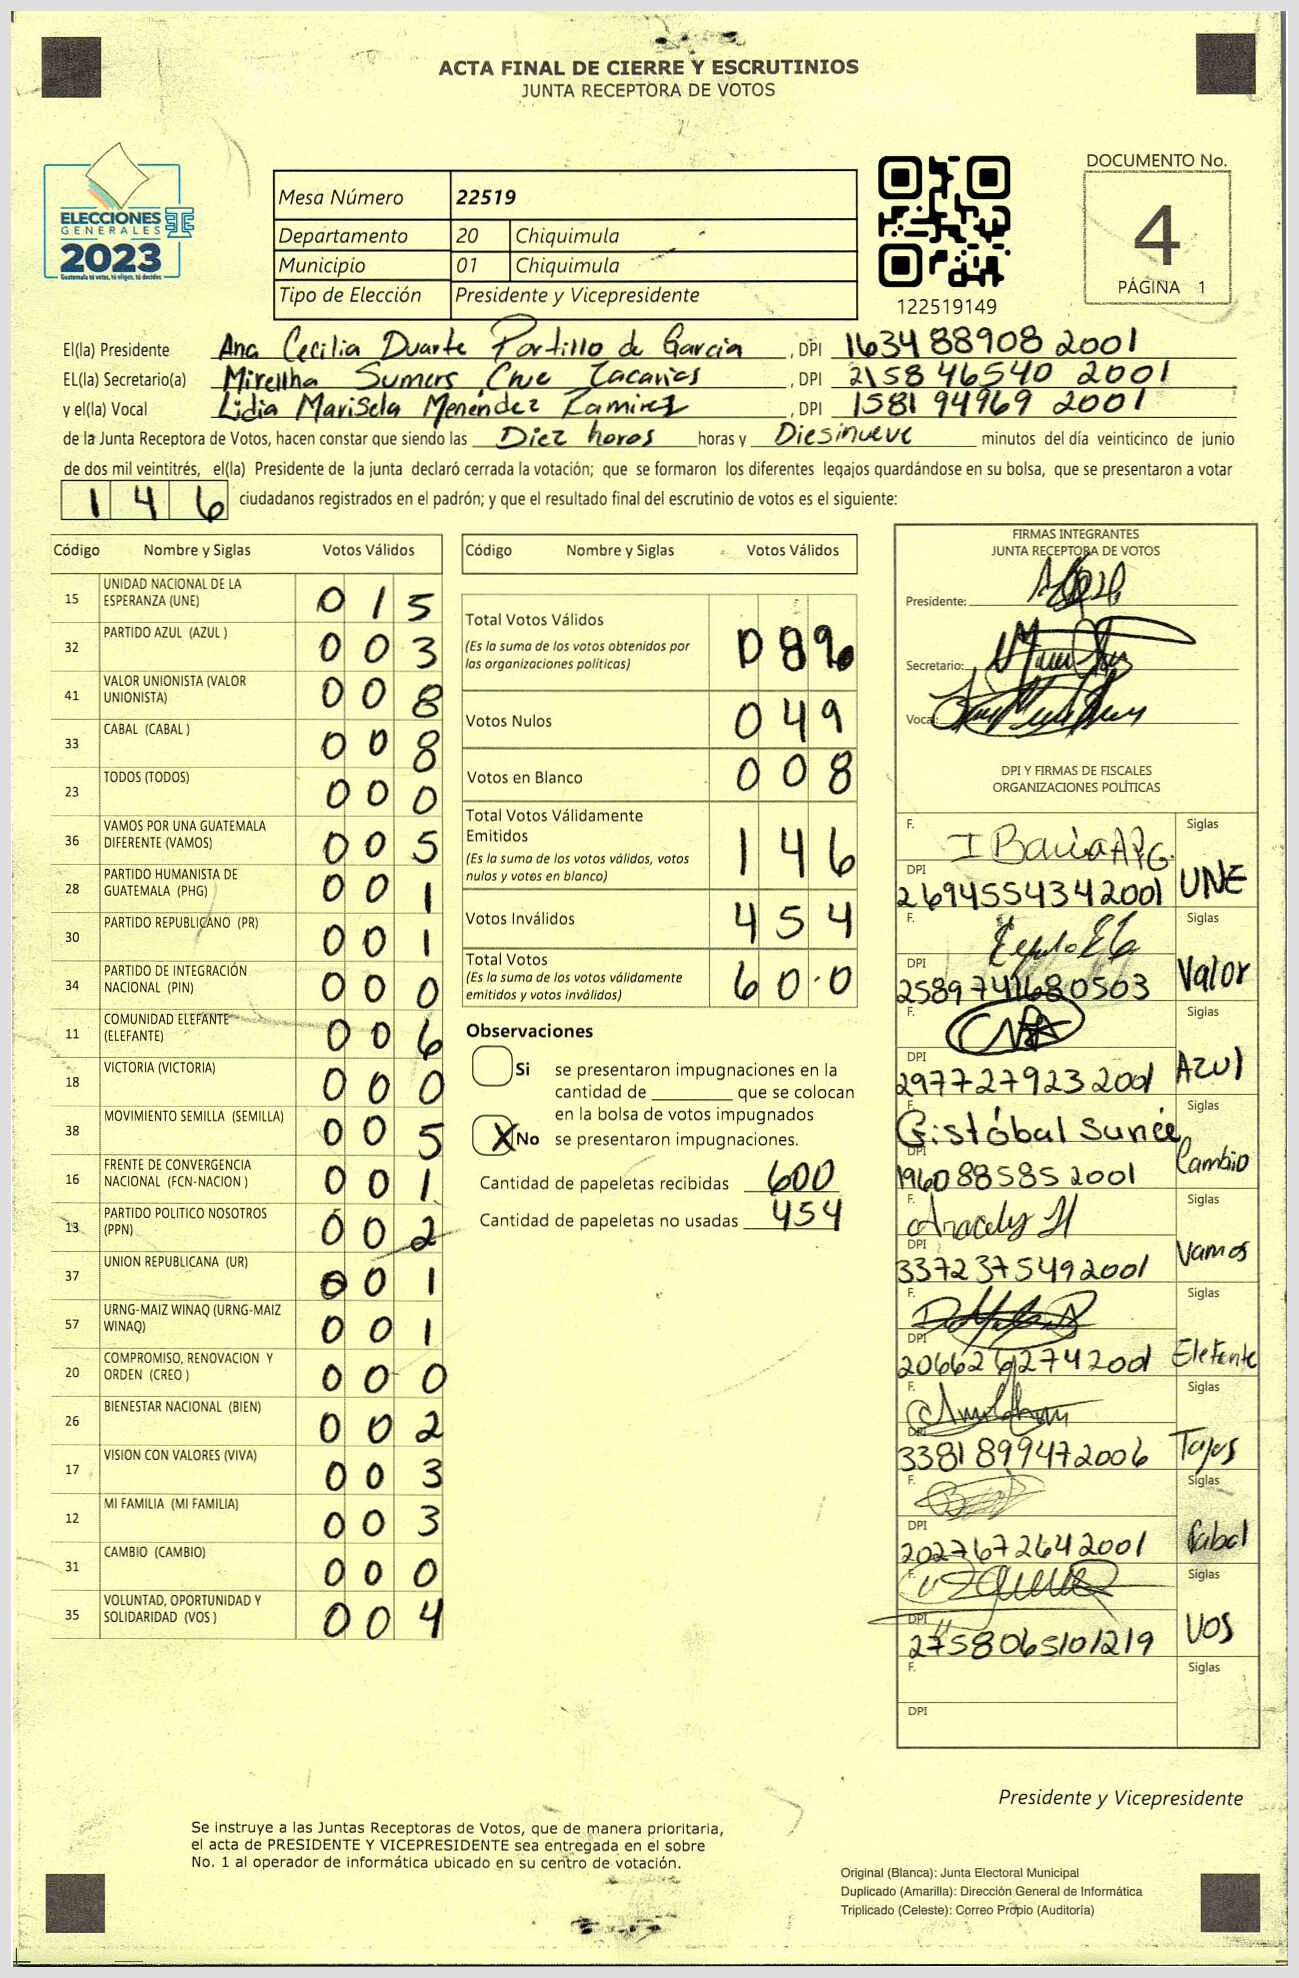 ACTA FINAL DE CIERRE Y ESCRUTINIOS
JUNTA RECEPTORA DE VOTOS
ELECCIONES
GENERALES
2023
Guatemala tú votas, tú eliges, tú decides
Mesa Número 22519
Departamento 20 Chiquimula
Municipio 01 Chiquimula
Tipo de Elección Presidente y Vicepresidente
122519149
DOCUMENTO No.
4
PÁGINA 1
El(la) Presidente Ana Cecilia Duarte Portillo de Garcia , DPI 1634 88908 2001
EL(la) Secretario(a) Mirellha Sumers Cruz Zacarias , DPI 2158 46540 2001
y el(la) Vocal Lidia Marisela Menéndez Ramirez , DPI 1581 94969 2001
de la Junta Receptora de Votos, hacen constar que siendo las Diez horas horas y Diesinueve minutos del día veinticinco de junio
de dos mil veintitrés, el(la) Presidente de la junta declaró cerrada la votación; que se formaron los diferentes legajos quardándose en su bolsa, que se presentaron a votar
1 4 6 ciudadanos registrados en el padrón; y que el resultado final del escrutinio de votos es el siguiente:
Código Nombre y Siglas Votos Válidos
15 UNIDAD NACIONAL DE LA ESPERANZA (UNE) 0 1 5
32 PARTIDO AZUL (AZUL ) 0 0 3
41 VALOR UNIONISTA (VALOR UNIONISTA) 0 0 8
33 CABAL (CABAL ) 0 0 8
23 TODOS (TODOS) 0 0 0
36 VAMOS POR UNA GUATEMALA DIFERENTE (VAMOS) 0 0 5
28 PARTIDO HUMANISTA DE GUATEMALA (PHG) 0 0 1
30 PARTIDO REPUBLICANO (PR) 0 0 1
34 PARTIDO DE INTEGRACIÓN NACIONAL (PIN) 0 0 0
11 COMUNIDAD ELEFANTE (ELEFANTE) 0 0 6
18 VICTORIA (VICTORIA) 0 0 0
38 MOVIMIENTO SEMILLA (SEMILLA) 0 0 5
16 FRENTE DE CONVERGENCIA NACIONAL (FCN-NACION ) 0 0 1
13 PARTIDO POLITICO NOSOTROS (PPN) 0 0 2
37 UNION REPUBLICANA (UR) 0 0 1
57 URNG-MAIZ WINAQ (URNG-MAIZ WINAQ) 0 0 1
20 COMPROMISO, RENOVACION Y ORDEN (CREO ) 0 0 0
26 BIENESTAR NACIONAL (BIEN) 0 0 2
17 VISION CON VALORES (VIVA) 0 0 3
12 MI FAMILIA (MI FAMILIA) 0 0 3
31 CAMBIO (CAMBIO) 0 0 0
35 VOLUNTAD, OPORTUNIDAD Y SOLIDARIDAD (VOS ) 0 0 4
Código Nombre y Siglas Votos Válidos
Total Votos Válidos
(Es la suma de los votos obtenidos por
las organizaciones políticas)
0 8
Votos Nulos 0 4 9
Votos en Blanco 0 0 8
Total Votos Válidamente
Emitidos
(Es la suma de los votos válidos, votos
nulos y votos en blanco)
1 4 6
Votos Inválidos 4 5 4
Total Votos
(Es la suma de los votos válidamente
emitidos y votos inválidos)
6 0 0
Observaciones
Si se presentaron impugnaciones en la
cantidad de ________ que se colocan
en la bolsa de votos impugnados
X No se presentaron impugnaciones.
Cantidad de papeletas recibidas 600
Cantidad de papeletas no usadas 454
FIRMAS INTEGRANTES
JUNTA RECEPTORA DE VOTOS
Presidente:
Secretario:
Vocal:
DPI Y FIRMAS DE FISCALES
ORGANIZACIONES POLÍTICAS
F. Siglas
DPI 2694554342001 UNE
F. Siglas
DPI 2589741680503 Valor
F. Siglas
DPI 2977279232001 AZUl
F. Cristóbal Siglas
DPI 1960885852001 Cambio
F. Aracely H Siglas
DPI 3372375492001 Vamos
F. Siglas
DPI 2066261274 2001 Elefante
F. Siglas
DPI 3381899472006
F. Siglas
DPI 2027672642001 Cabal
F. Siglas
DPI 2758065101219 VOS
F. Siglas
DPI
Presidente y Vicepresidente
Se instruye a las Juntas Receptoras de Votos, que de manera prioritaria,
el acta de PRESIDENTE Y VICEPRESIDENTE sea entregada en el sobre
No. 1 al operador de informática ubicado en su centro de votación.
Original (Blanca): Junta Electoral Municipal
Duplicado (Amarilla): Dirección General de Informática
Triplicado (Celeste): Correo Propio (Auditoría)